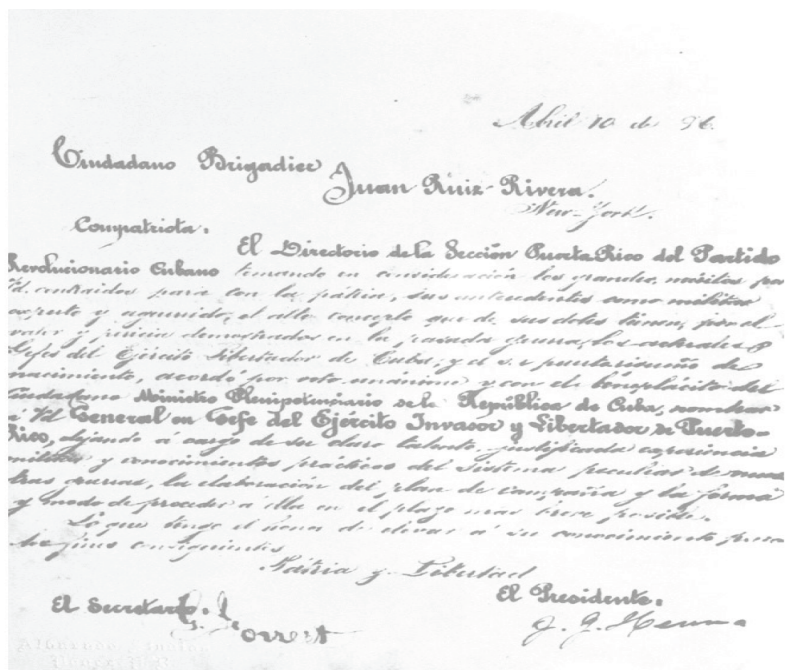 Abril 10 de 96.
Ciudadano Brigadier
Juan Ruiz Rivera.
New-York.
Compatriota.
El Directorio de la Sección Puerto Rico del Partido
Revolucionario Cubano tomando en consideración los grandes méritos por
Vd. contraidos para con la pátria, sus antecedentes como militar
experto y aguerrido, el alto concepto que de sus dotes tienen, por el
valor y pericia demostrados en la pasada guerra, los actuales
Gefes del Ejército Libertador de Cuba; y el ser puertoriqueño de
nacimiento, acordó por voto unánime y con el beneplácito del
Ciudadano Ministro Plenipotenciario de la República de Cuba, nombrar
á Vd General en Gefe del Ejército Invasor y Libertador de Puerto-
Rico, dejando á cargo de su claro talento, justificada experiencia
militar y conocimientos prácticos del sistema peculiar de nues
tras guerras, la elaboración del plan de campaña y la forma
y modo de proceder á ella en el plazo mas breve posible.
Lo que tengo el honor de elevar á su conocimiento para
los fines consiguientes
Patria y Libertad
El Secretario.
El Presidente.
J. J. Henna